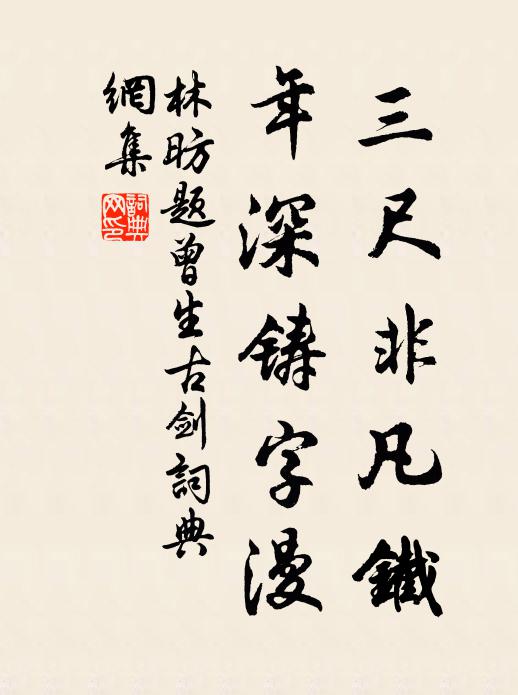 三尺非凡鐵
年深铸字漫
林昉题曾生古剑詞典
網集
詞典
网印